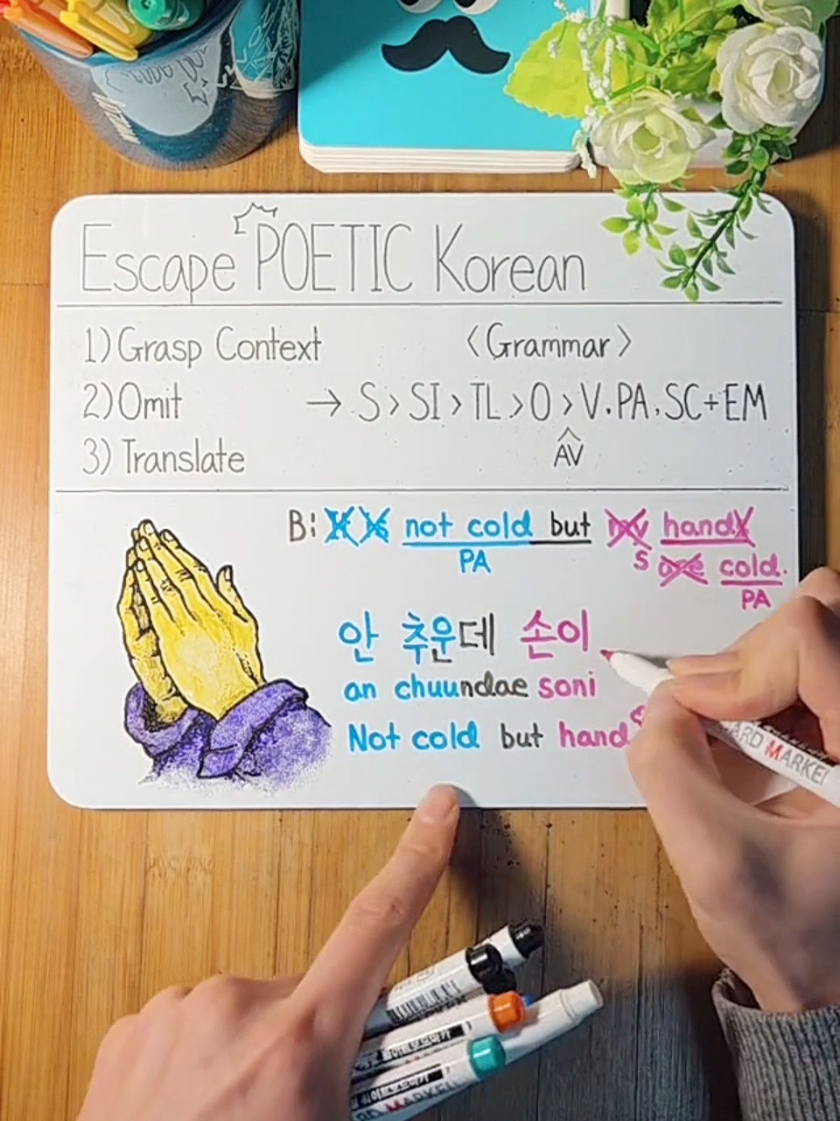 Escape POETIC Korean
1) Grasp Context
<Grammar>
2) Omit
→ S > SI > TL > O > V. PA, SC + EM
AV
3) Translate
B: not cold but my hand
PA
S are cold.
PA
안 추운데 손이
an chuundae soni
Not cold but hand